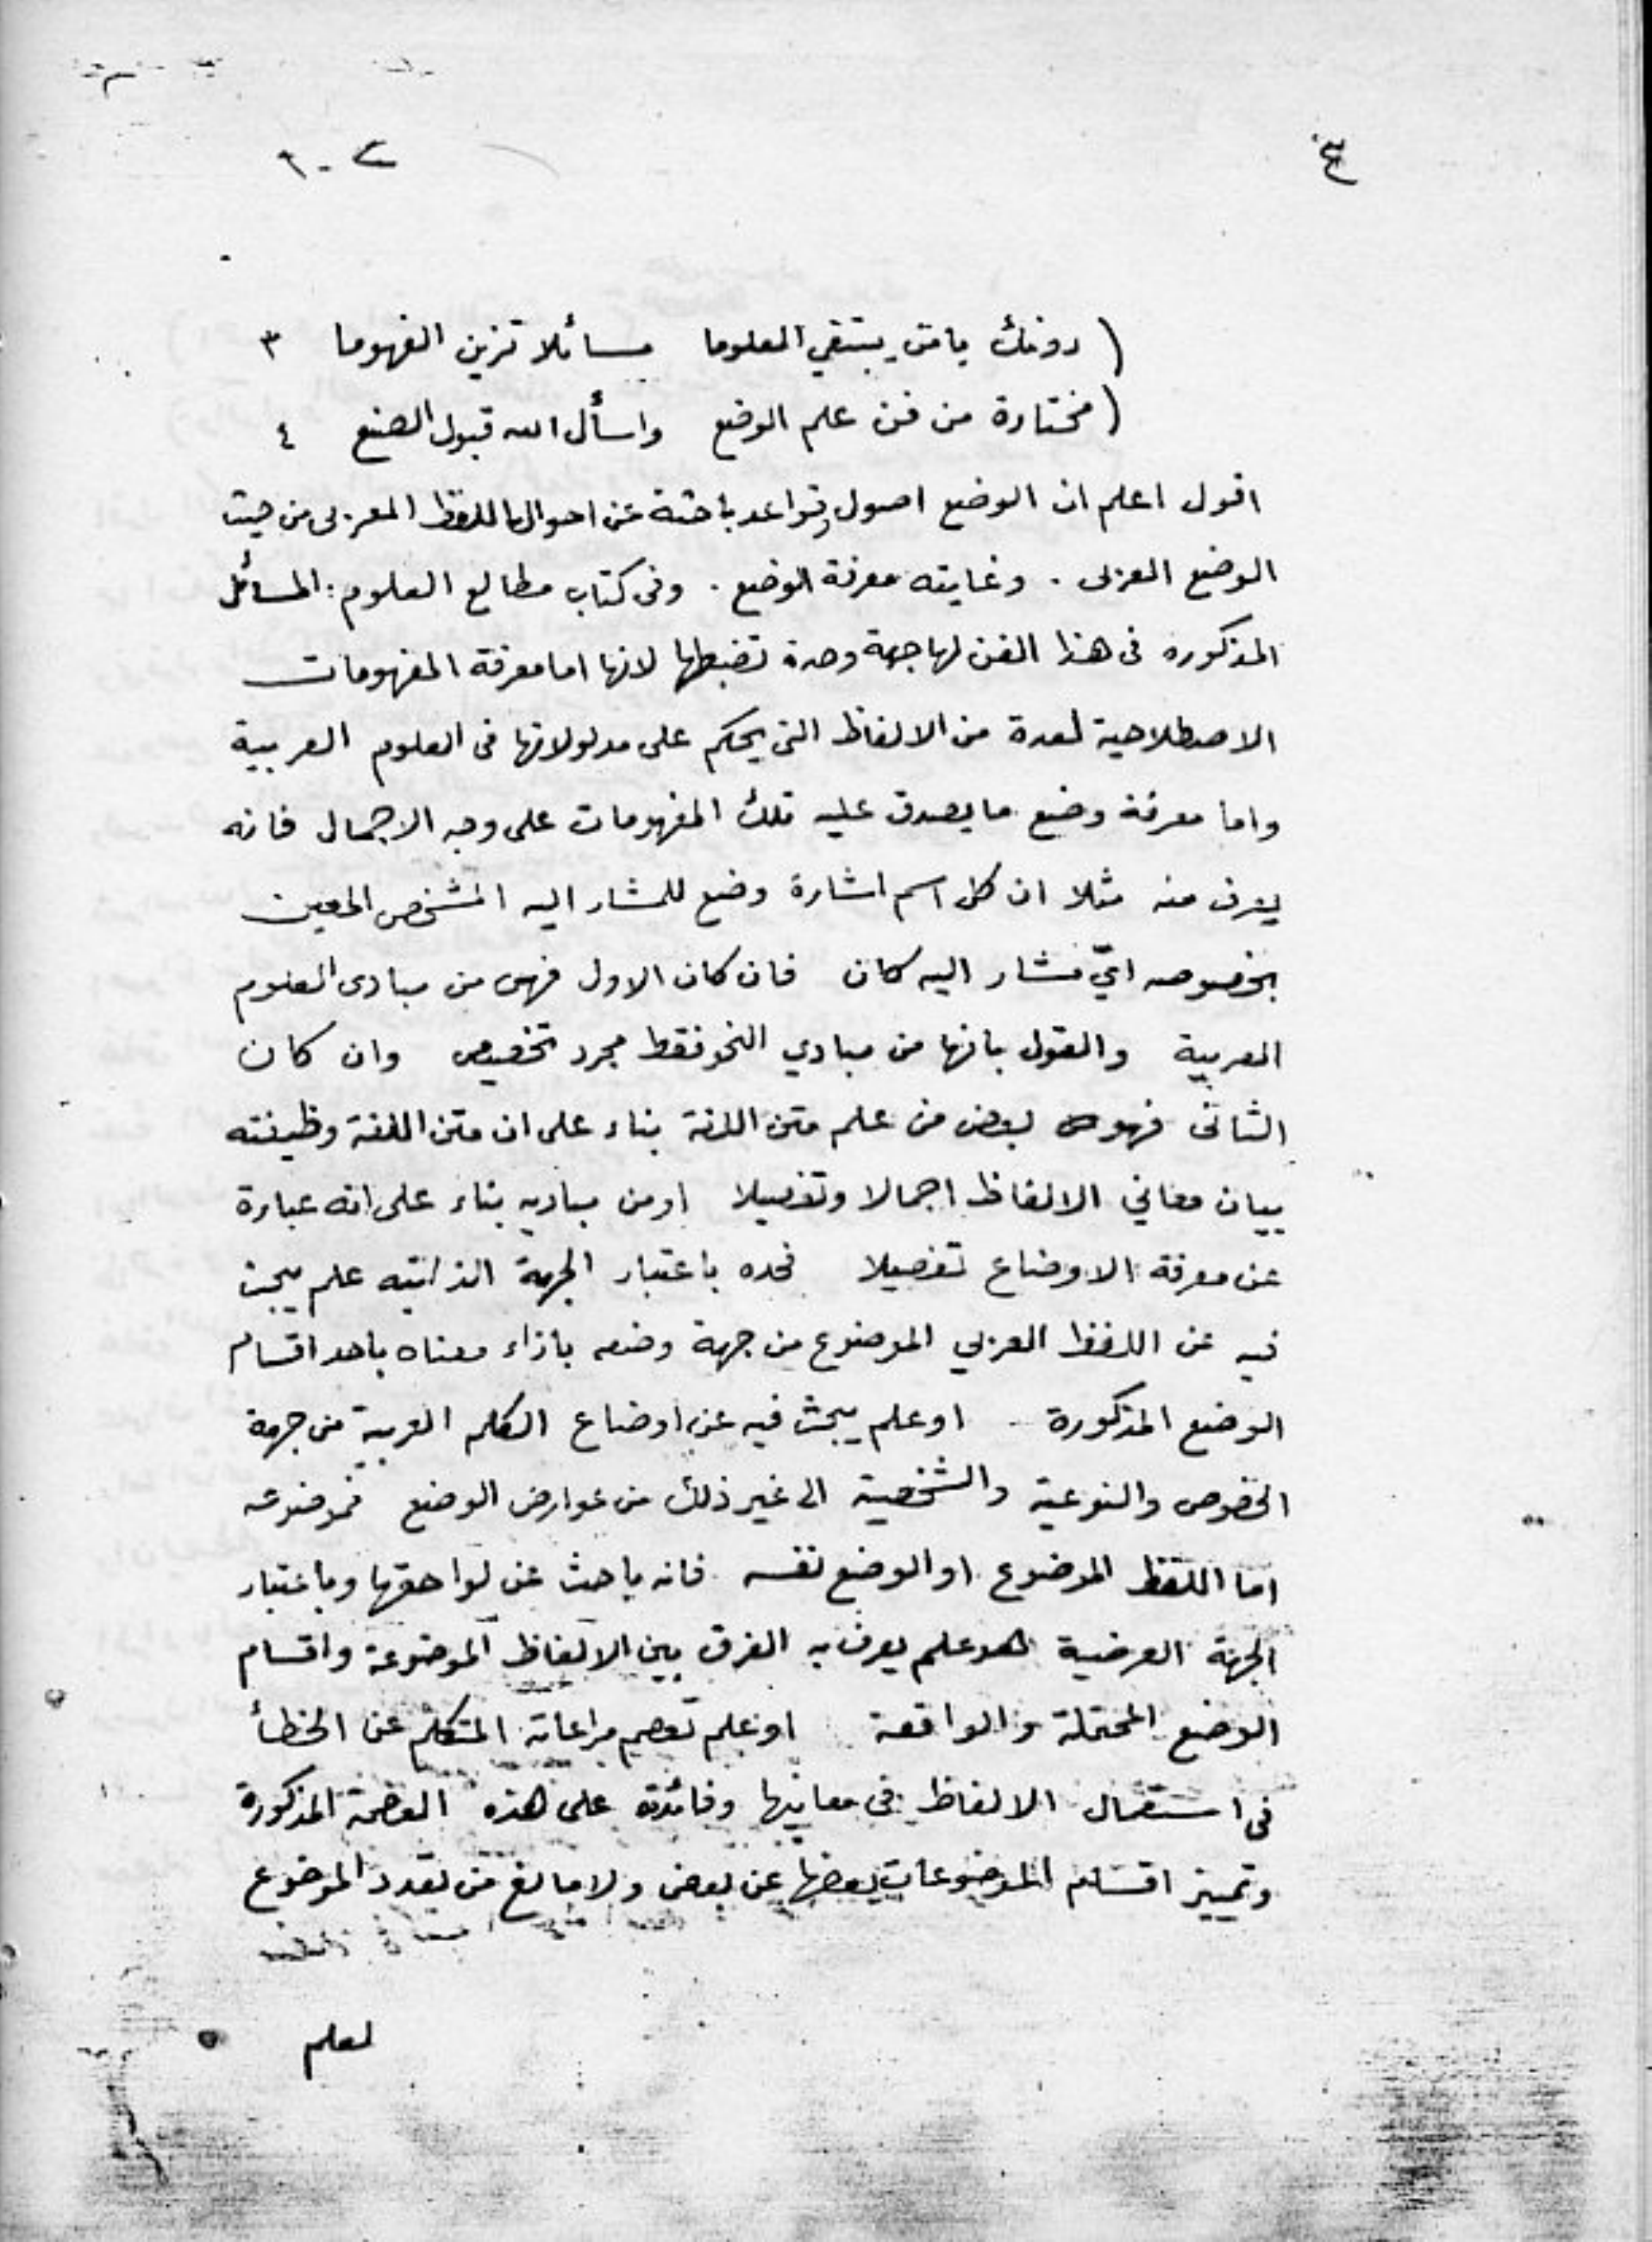 ( دونك يا من يبتغي العلوما   مسائلا تزين الفهوما   ٣
( مختارة من فن علم الوضع   واسأل الله قبول الصنع   ٤
اقول اعلم ان الوضع اصول وقواعد باحثة عن احوال اللفظ العربى من حيث
الوضع العربى . وغايته معرفة الوضع . وفى كتاب مطالع العلوم : المسائل
المذكوره فى هذا الفن لها جهة وحدة تضبطها لانها اما معرفة المفهومات
الاصطلاحية لعدة من الالفاظ التى يحكم على مدلولاتها فى العلوم العربية
واما معرفة وضع ما يصدق عليه تلك المفهومات على وجه الاجمال فانه
يعرف منه مثلا ان كل اسم اشارة وضع للمشار اليه المشخص المعين
بخصوصه ايّ مشار اليه كان   فان كان الاول فهى من مبادى العلوم
العربية   والقول بانها من مبادي النحو فقط مجرد تخصيص   وان كان
الثانى فهو بعض من علم متن اللغة بناء على ان متن اللغة وظيفته
بيان معاني الالفاظ اجمالا وتفصيلا   او من مباديه بناء على انه عبارة
عن معرفة الاوضاع تفصيلا   فحده باعتبار الجهة الذاتيه علم يبحث
فيه عن اللفظ العربي الموضوع من جهة وضعه بازاء معناه باحد اقسام
الوضع المذكورة   او علم يبحث فيه عن اوضاع الكلم العربية من جهة
الخصوص والنوعية والشخصية الى غير ذلك من عوارض الوضع   فموضوعه
اما اللفظ الموضوع او الوضع نفسه   فانه باحث عن لواحقها وباعتبار
الجهة العرضية هو علم يعرف به الفرق بين الالفاظ الموضوعة واقسام
الوضع المحتملة والواقعة   او علم تعصم مراعاته المتكلم عن الخطأ
فى استعمال الالفاظ فى معانيها وفائدته على هذه العصمة المذكورة
وتمييز اقسام الموضوعات بعضها عن بعض ولا مانع من تعدد الموضوع
لعلم